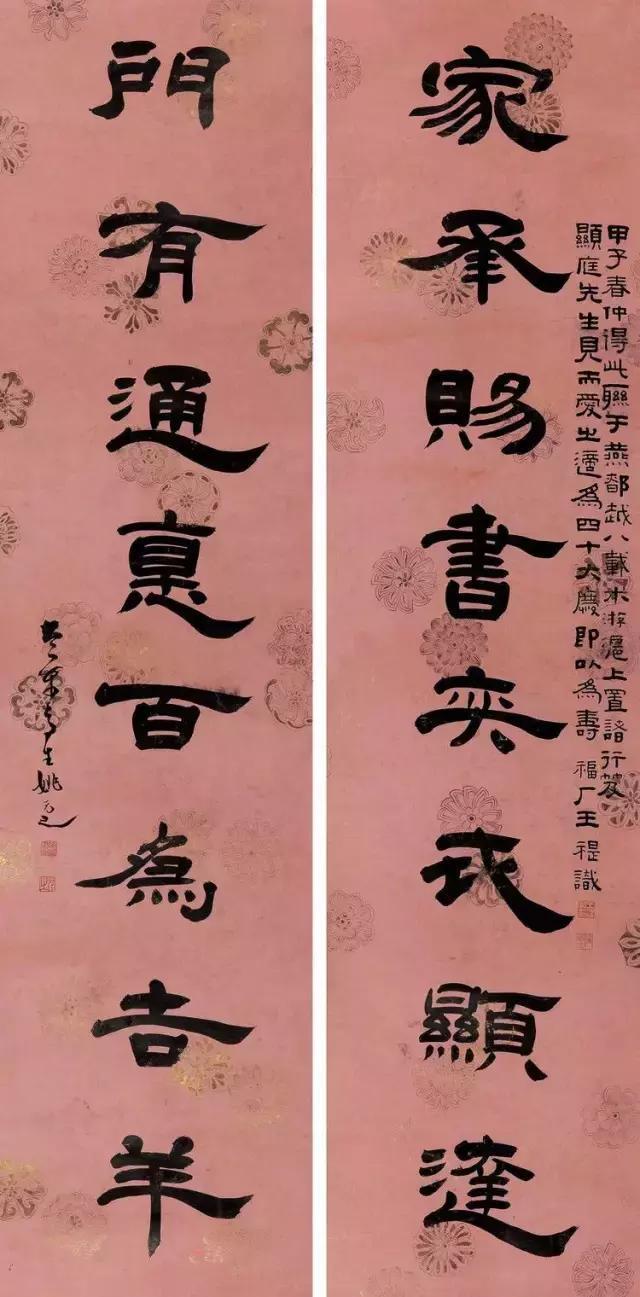 甲子春仲得此聯于燕都越八載來游滬上置諸行笈
顯庭先生見而愛之適為四十大慶即以為壽 福厂王禔識
家承賜書奕顯達
門有通悳百為吉羊
生姚元之